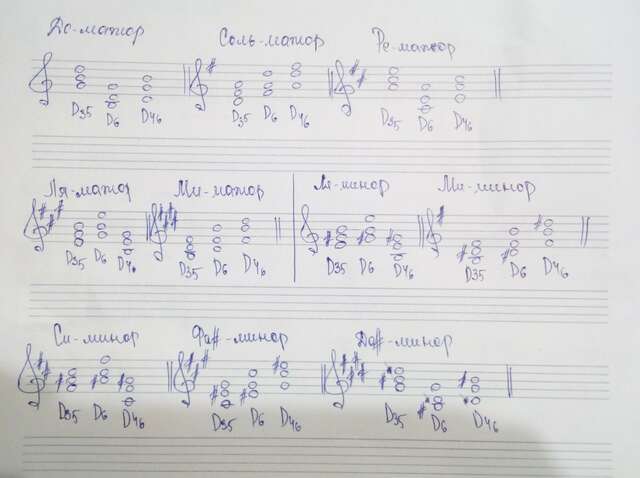 До-мажор Соль-мажор Ре-мажор
D35 D6 D46 D35 D6 D46 D35 D6 D46
Ля-мажор Ми-мажор Ля-минор Ми-минор
D35 D6 D46 D35 D6 D46 D35 D6 D46 D35 D6 D46
Си-минор Фа#-минор До#-минор
D35 D6 D46 D35 D6 D46 D35 D6 D46